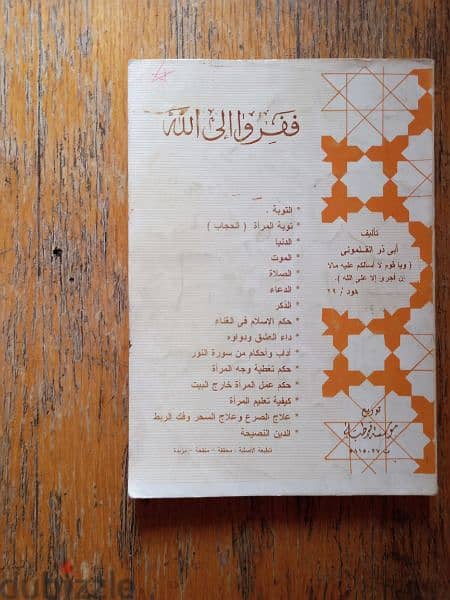 ففروا إلى الله
* التوبة .
* توبة المرأة ( الحجاب )
* الدنيا
* الموت
* الصلاة
* الدعاء
* الذكر
* حكم الإسلام فى الغناء
* داء العشق ودواوه
* آداب وأحكام من سورة النور
* حكم تغطية وجه المرأة
* حكم عمل المرأة خارج البيت
* كيفية تعليم المرأة
* علاج الصرع وعلاج السحر وفك الربط
* الدين النصيحة
الطبعة الأصلية - محققة - منقحة - مزيدة
تأليف
أبى ذر القلمونى
( ويا قوم لا أسألكم عليه مالا
إن أجرى إلا على الله ) .
هود / ٢٩
توزيع
مؤسسة قرطبة
ت ٥٨١٥٠٢٧
dubizzle